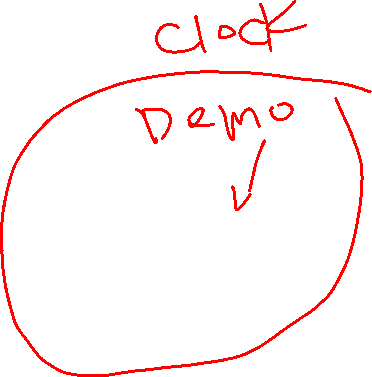 Clock
Demo